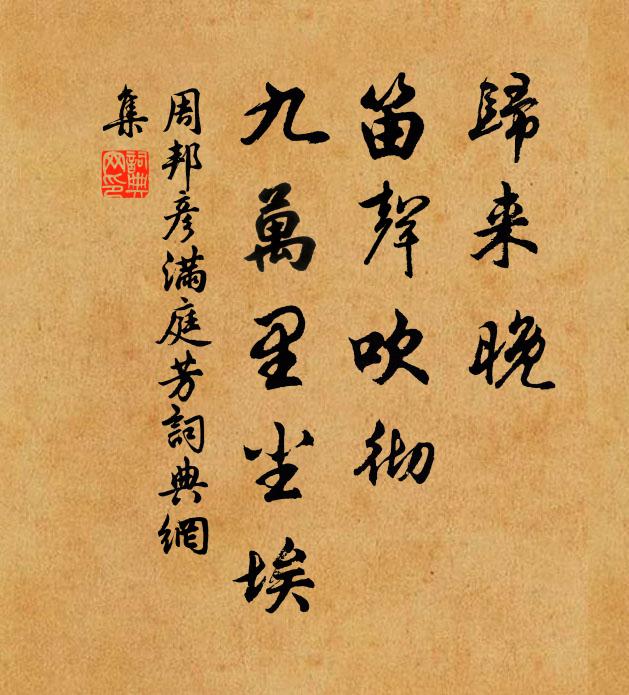 歸来晚
笛聲吹彻
九萬里尘埃
周邦彦滿庭芳詞典網
集
詞典
网印